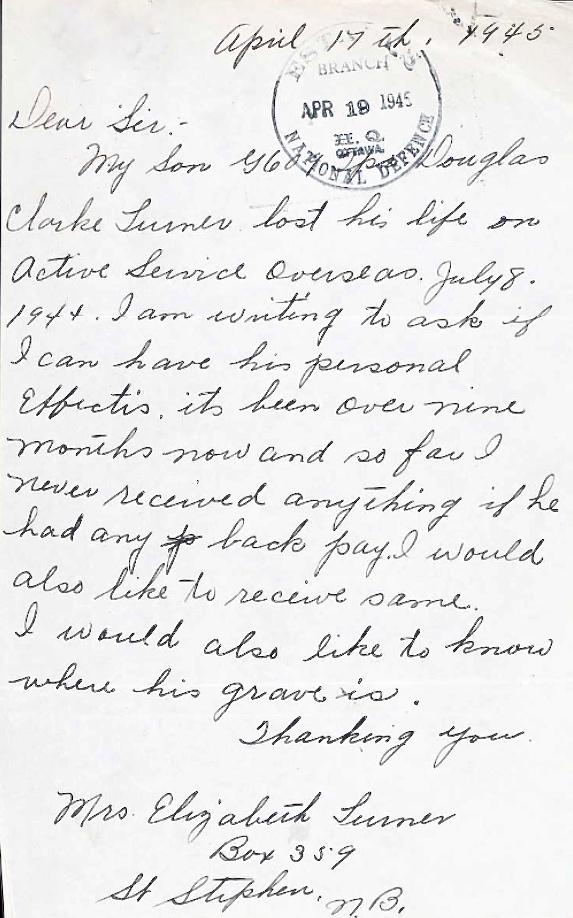 April 17th. 1945
ESTATES BRANCH
APR 19 1945
H. Q.
OTTAWA
NATIONAL DEFENCE
Dear Sir:-
My Son Douglas
Clarke Turner lost his life on
Active Service Overseas. July 8.
1944. I am writing to ask if
I can have his personal
Effectis. its been over nine
months now and so far I
never received anything if he
had any back pay. I would
also like to receive same.
I would also like to know
where his grave is.
Thanking you.
Mrs. Elizabeth Turner
Box 359
St Stephen, N.B.